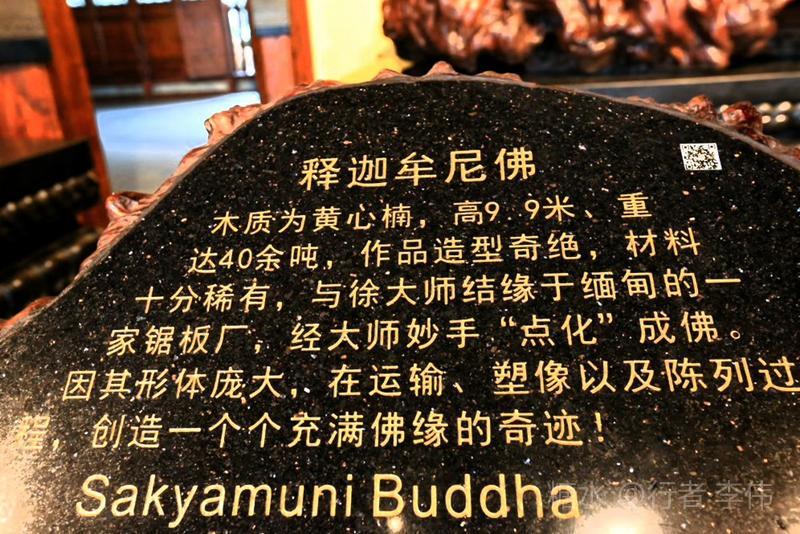 释迦牟尼佛
木质为黄心楠，高9.9米、重
达40余吨，作品造型奇绝，材料
十分稀有，与徐大师结缘于缅甸的一
家锯板厂，经大师妙手“点化”成佛。
因其形体庞大，在运输、塑像以及陈列过
程，创造一个个充满佛缘的奇迹！
Sakyamuni Buddha
水@行者 李伟